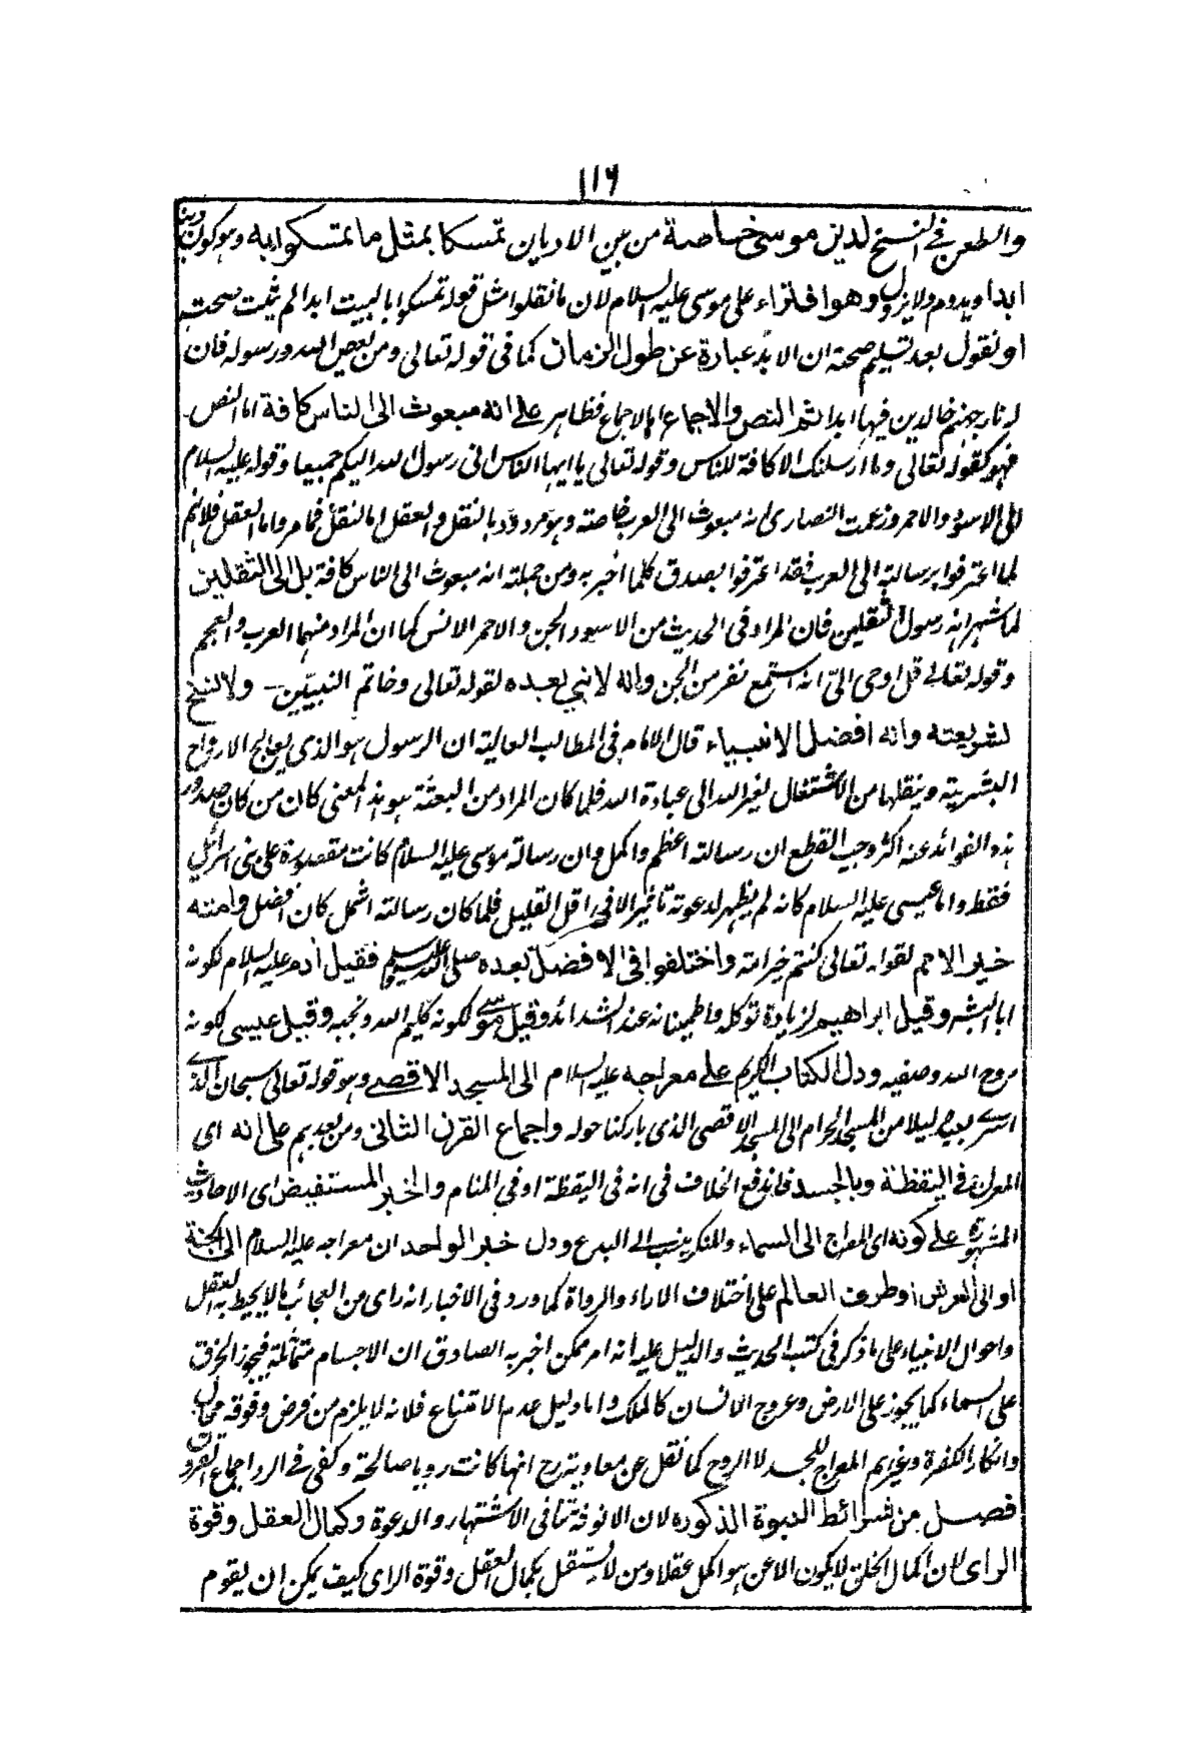 ١١٦
والطعن في النسخ لدين موسى خاصة من بين الاديان تمسكا بمثل ما تمسكوا به وهو كون دينه
ابدا ويدوم ولا يزول وهو افتراء على موسى عليه السلام لان ما نقلوا مثل قوله تمسكوا بالسبت ابدا لم يثبت صحته
او نقول بعد تسليم صحته ان الابد عبارة عن طول الزمان كما في قوله تعالى ومن يعص الله ورسوله فان
له نار جهنم خالدين فيها ابدا ثم النص والاجماع ظاهر على انه مبعوث الى الناس كافة اما النص
فهو كقوله تعالى وما ارسلنك الا كافة للناس وقوله تعالى يا ايها الناس اني رسول الله اليكم جميعا وقوله عليه السلام
الى الاسود والاحمر وزعمت النصارى انه مبعوث الى العرب خاصة وهو مردود بالنقل والعقل اما النقل فما مر واما العقل فلانهم
لما اعترفوا برسالته الى العرب فقد اعترفوا بصدق كلما اخبر به ومن جملته انه مبعوث الى الناس كافة بل الى الثقلين
لما شهر انه رسول الثقلين فان المراد في الحديث من الاسود الجن والاحمر الانس كما ان المراد منهما العرب والعجم
وقوله تعالى قل اوحى الىّ انه استمع نفر من الجن وانه لا نبي بعده لقوله تعالى وخاتم النبيّين - ولا نسخ
لشريعته وانه افضل الانبياء قال الامام في المطالب العالية ان الرسول هو الذي يعالج الارواح
البشرية وينقلها من الاشتغال لغير الله الى عبادة الله فلما كان المراد من البعثة هو هذا المعنى كان من كان صدور
هذه الفوائد عنه اكثر وجب القطع ان رسالته اعظم واكمل وان رسالة موسى عليه السلام كانت مقصورة على بني اسرائيل
فقط واما عيسى عليه السلام كانه لم يظهر لدعوته تاثير الا في اقل القليل فلما كان رسالته اشمل كان افضل وامته
خير الامم لقوله تعالى كنتم خير امة واختلفوا في الافضل بعده صلى الله عليه وسلم فقيل آدم عليه السلام لكونه
ابا البشر وقيل ابراهيم لزيادة توكله واطمينانه عند الشدائد وقيل موسى لكونه كليم الله ونجيه وقيل عيسى لكونه
روح الله وصفيه ودل الكتاب الكريم على معراجه عليه السلام الى المسجد الاقصى وهو قوله تعالى سبحان الذي
اسرى بعبده ليلا من المسجد الحرام الى المسجد الاقصى الذي باركنا حوله واجماع القرن الثاني ومن بعدهم على انه اى
المعراج في اليقظة وبالجسد فاندفع الخلاف في انه في اليقظة او في المنام والخبر المستفيض اى الاحاديث
المشهورة على كونه اى المعراج الى السماء والمنكر ينسب الى البدع ودل خبر الواحد ان معراجه عليه السلام الى الجنة
او الى العرش او طرف العالم على اختلاف الاراء والرواة كما ورد في الاخبار انه راى من العجائب ما لا يحيط به العقل
واحوال الانبياء على ما ذكر في كتب الحديث والدليل عليه انه امر ممكن اخبر به الصادق ان الاجسام متماثلة فيجوز الخرق
على السماء كما يجوز على الارض وعروج الانسان كالملك واما دليل عدم الامتناع فلانه لا يلزم من فرض وقوعه محال
وانكار الكفرة وغيرهم المعراج للجسد لا الروح كما نقل عن معاوية رح انها كانت رويا صالحة وكفى في الرد اجماع القرون
فصل من شرائط النبوة الذكورة لان الانوثة تنافي الاشتهار والدعوة وكمال العقل وقوة
الراى لان اكمال الخلق لا يكون الا عن هو اكمل عقلا ومن لا يستقل بكمال العقل وقوة الراى كيف يمكن ان يقوم